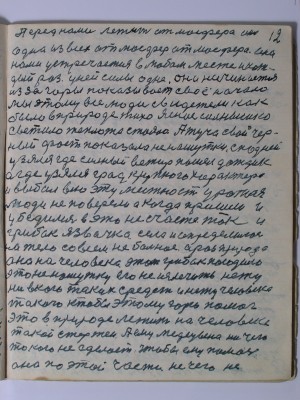 12
Перед нами лежит атмосфера она
одна из всех атмосфер атмосфера. она
нами устречается в любом месте и каж-
дый раз. у ней силы одна, они начинается
из за горы показывает своё начало
мы этому все люди свидетели как
было в природе тихо ясное солнышко
светило теплота стояла А туча своей чер-
ный фронт показала не на шутку, с подней
узялся где сильный ветер пошел дождик
а где узялся град крупного характера
и выбил всю эту местность урожая
люди не поверели а когда пришли и
убедились в это несчастье так и
грибок язвачка села и определилася
на тело совсем не больное а раз природа
она на человека этот грибок посадила
это не на шутку его не излечить нету
ни в кого таких средств и нету человека
такого чтобы этому горю помог
это в природе лежить на человека
такой стержень. Ему медецына ничего
такого не сделает чтобы ему помочь
она по этой части ничего не